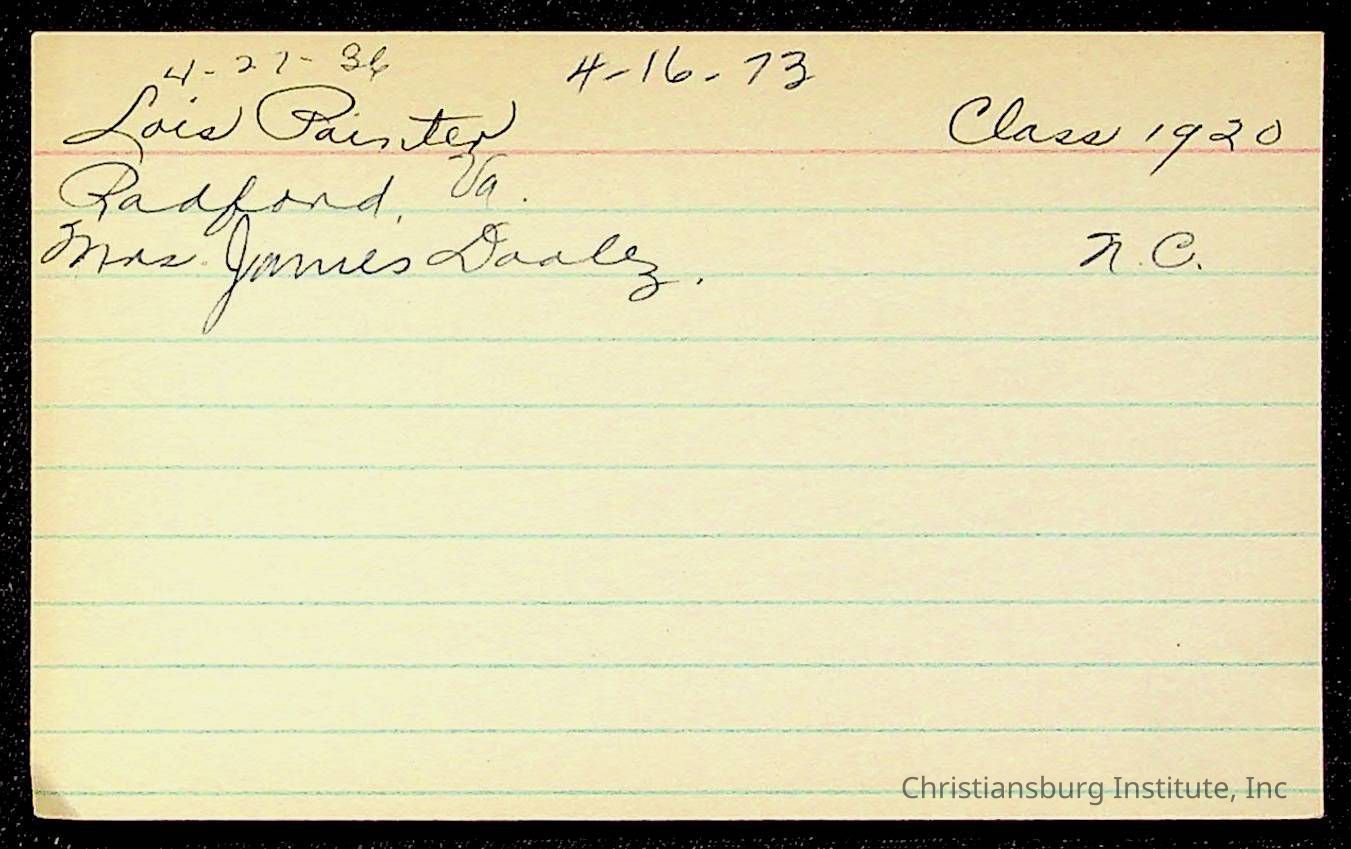 4-27-36 4-16-73
Lois Painter Class 1920
Radford, Va.
Mrs. James Dooley. N.C.
Christiansburg Institute, Inc